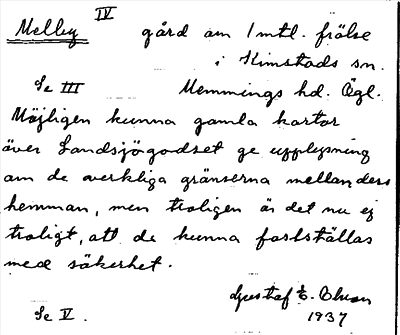 Melby IV gård om 1 mtl. frälse
i Kimstads sn.
Se III Memmings hd. Ögl.
Möjligen kunna gamla kartor
över Landsjögodset ge upplysning
om de verkliga gränserna mellan ders
hemman, men troligen är det nu ej
troligt, att de kunna fastställas
med säkerhet.
Gustaf E.
Se V. 1937